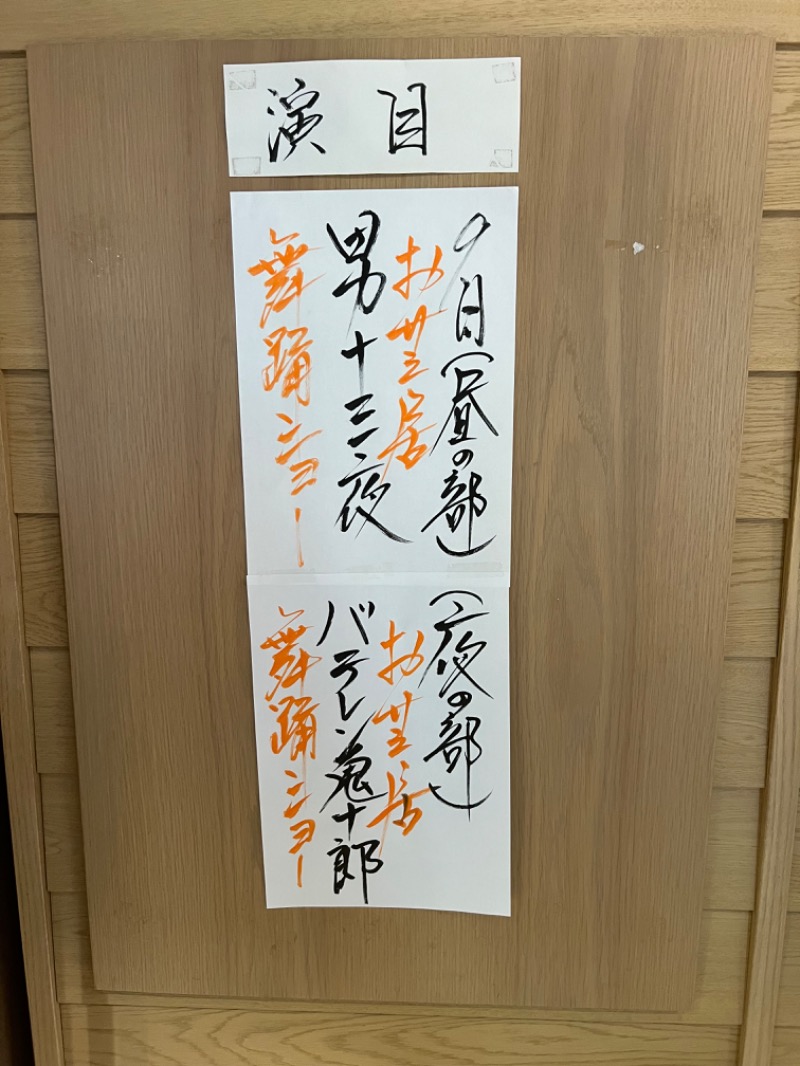 演目
9日(昼の部)
お芝居
男十三夜
舞踊ショー
(夜の部)
お芝居
バテレン鬼十郎
舞踊ショー